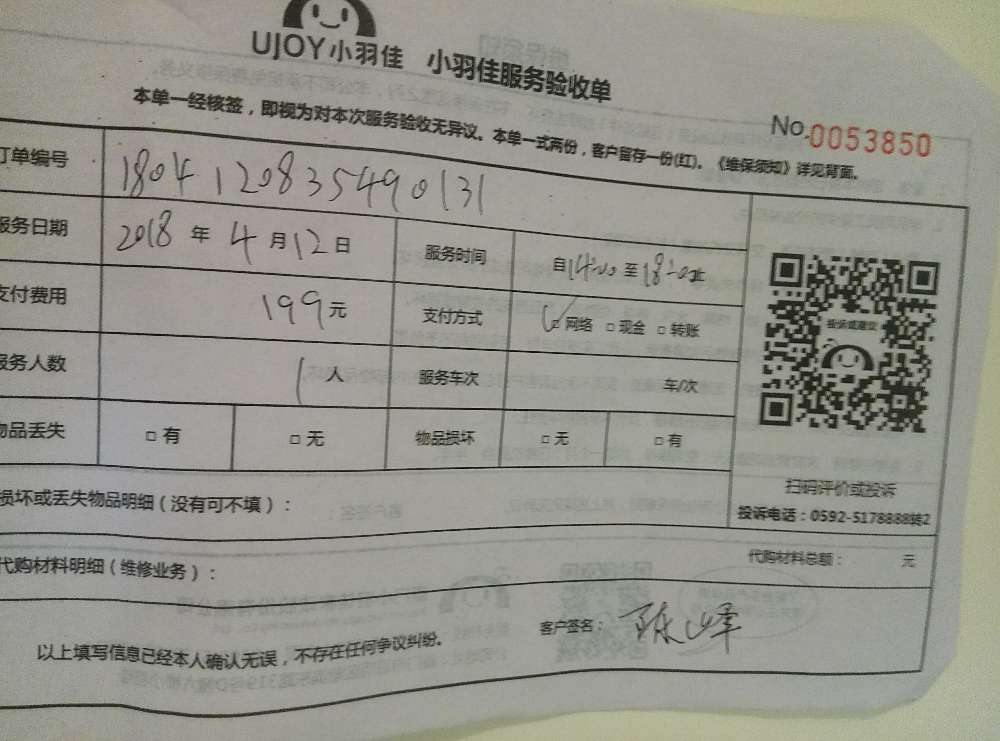 UJOY小羽佳 小羽佳服务验收单
本单一经核签，即视为对本次服务验收无异议。本单一式两份，客户留存一份(红)。《维保须知》详见背面。
No.0053850
订单编号 1804120835490131
服务日期 2018 年 4 月 12 日 服务时间 自14:00 至 18:00止
支付费用 199元 支付方式 ☑网络 □现金 □转账
服务人数 1 人 服务车次 车/次
物品丢失 □有 □无 物品损坏 □无 □有
投诉或建议
扫码评价或投诉
投诉电话：0592-5178888转2
损坏或丢失物品明细（没有可不填）：
代购材料明细（维修业务）： 代购材料总额： 元
以上填写信息已经本人确认无误，不存在任何争议纠纷。 客户签名：